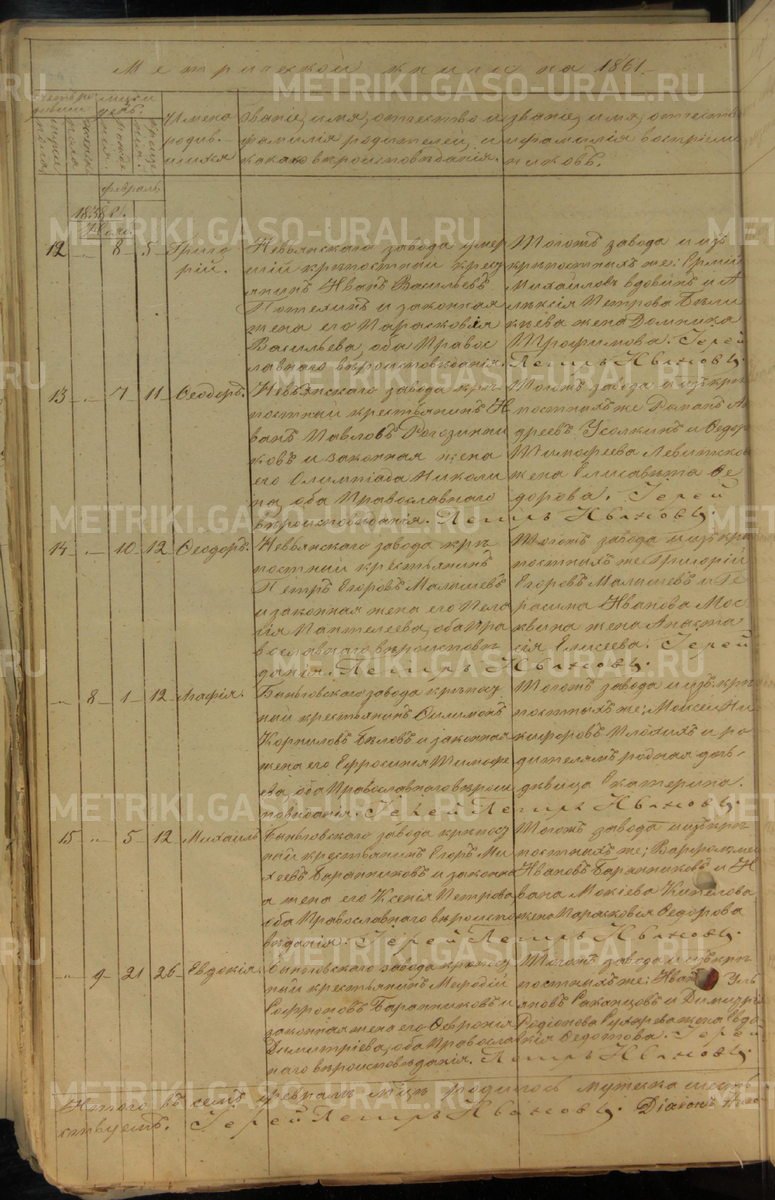 Метрической книги на 1861
Имена родив- шихся
Званіе, имя, отчество и фамилія родителей, и какого вѣроисповѣданія.
Званіе, имя, отчество и фамилія воспріемниковъ.
февраль
12 „ 8 5 Григорій.
Невьянскаго завода умер
шій крѣпостный крес
янинъ Иванъ Васильевъ
Потехинъ и законная
жена его Парасковія
Васильева, оба Правос
лавнаго вѣроисповѣданія.
Тогожъ завода изъ
крѣпостныхъ же:
Михаиловъ вдовинъ и А
лексія Петрова
жена Домника
Трофимова. Іерей
Петръ Ивановъ.
13 „ 7 11 Ѳеодоръ.
Невьянскаго завода крѣ
постный крестьянинъ И
ванъ Павловъ
ковъ и законная жена
его Олимпіада Николи
на оба Православнаго
вѣроисповѣданія.
Тогожъ завода изъ крѣ
постныхъ же Романъ Ан
дреевъ Усолкинъ и Ѳедор
Тимофеева
жена Елисавета Ѳе
дорова. Іерей
Петръ Ивановъ.
14 „ 10 12 Ѳеодоръ.
Невьянскаго завода крѣ
постный крестьянинъ
Петръ Егоровъ Малышевъ
и законная жена его Пела
гія Пантелеева, оба Пра
вославнаго вѣроисповѣ
данія.
Тогожъ завода изъ крѣ
постныхъ же Григорій
Егоровъ Малышевъ и Ге
расима Иванова Мос
квина жена Анаста
сія Елисеева. Іерей
Петръ Ивановъ.
„ 8 1 12 Агафія.
Быньговскаго завода крѣпост
ный крестьянинъ Филимонъ
Корниловъ Бѣловъ и законная
жена его Ефросинія Тимофе
ева, оба Православнаго вѣроис
повѣданія.
Тогожъ завода изъ крѣ
постныхъ же; Моисей Ни
кифоровъ Плохихъ и ро
дителямъ родная дочь,
дѣвица Екатерина.
Іерей Петръ Ивановъ.
15 „ 5 12 Михаилъ
Быньговскаго завода крѣпост
ный крестьянинъ Егоръ Ми
хеевъ Баранниковъ и законна
я жена его Ксенія Петрова,
оба Православнаго вѣроиспо
вѣданія.
Тогожъ завода изъ крѣ
постныхъ же; Варфоломей
Ивановъ Баранниковъ и И
вана Мокіева
жена Парасковія Ѳедорова
Іерей Петръ Ивановъ.
„ 9 21 26 Евдокія.
Быньговскаго завода крѣпост
ный крестьянинъ Меѳодій
Софроновъ Баранниковъ и
законная жена его Февронія
Димитріева, оба Православ
наго вѣроисповѣданія.
Тогожъ завода изъ крѣ
постныхъ же; Иванъ Уль
яновъ и Димитрія
Родіонова жена Евдо
кія Федотова. Іерей
Петръ Ивановъ.
Итого въ семъ февралѣ мѣцѣ родилось мужеска
Іерей Петръ Ивановъ. Діаконъ
METRIKI.GASO-URAL.RU